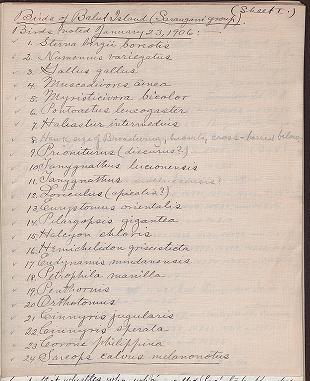 (Sheet I.)
Birds of Balut Island (Sarangani group)
Birds noted January 23, 1906:—
1. Sterna bergii borealis
2. Numenius variegatus
3. Gallus gallus
4. Muscadivores aenea
5. Myristicivora bicolor
6. Pontoaetus leucogaster
7. Haliastur intermedius
8. Hawk, size of Broadwing, cross-barred below
9. Prioniturus (discurus?)
10. Tanygnathus lucionensis
11. Tanygnathus
12. Loriculus (apicalis?)
13. Eurystomus orientalis
14. Pelargopsis gigantea
15. Halcyon chloris
16. Hemichelidon griseisticta
17. Eudynamis mindanensis
18. Petrophila manilla
19. Penthornis
20. Orthotomus
21. Cinnyris jugularis
22. Cinnyris sperata
23. Corone philippina
24. Sarcops calvus melanonotus